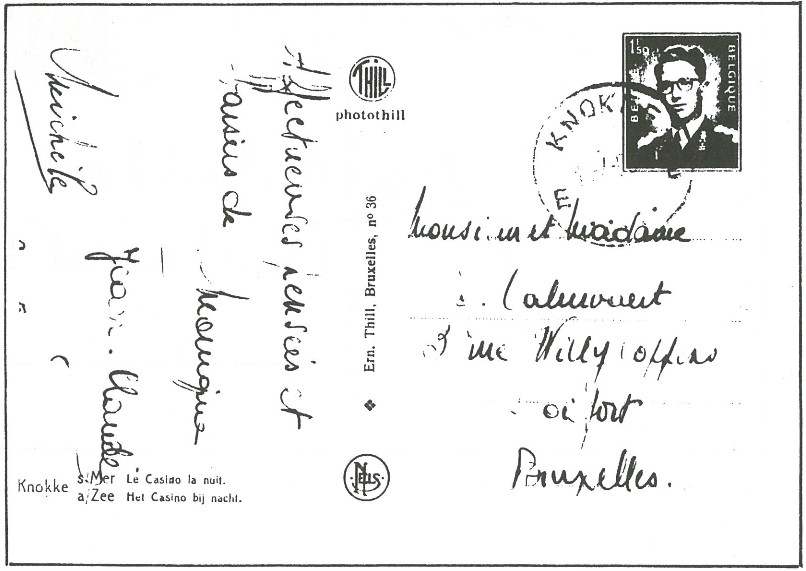 Affectueuses pensées et
baisers de
Monique
Jean-Claude
Michèle
THILL
photothill
Ern. Thill, Bruxelles, nº 36
NELS
Knokke s/Mer Le Casino la nuit.
a/Zee Het Casino bij nacht.
1F50
BELGIQUE
KNOKKE
Monsieur et Madame
Willy Coppens
Bruxelles.